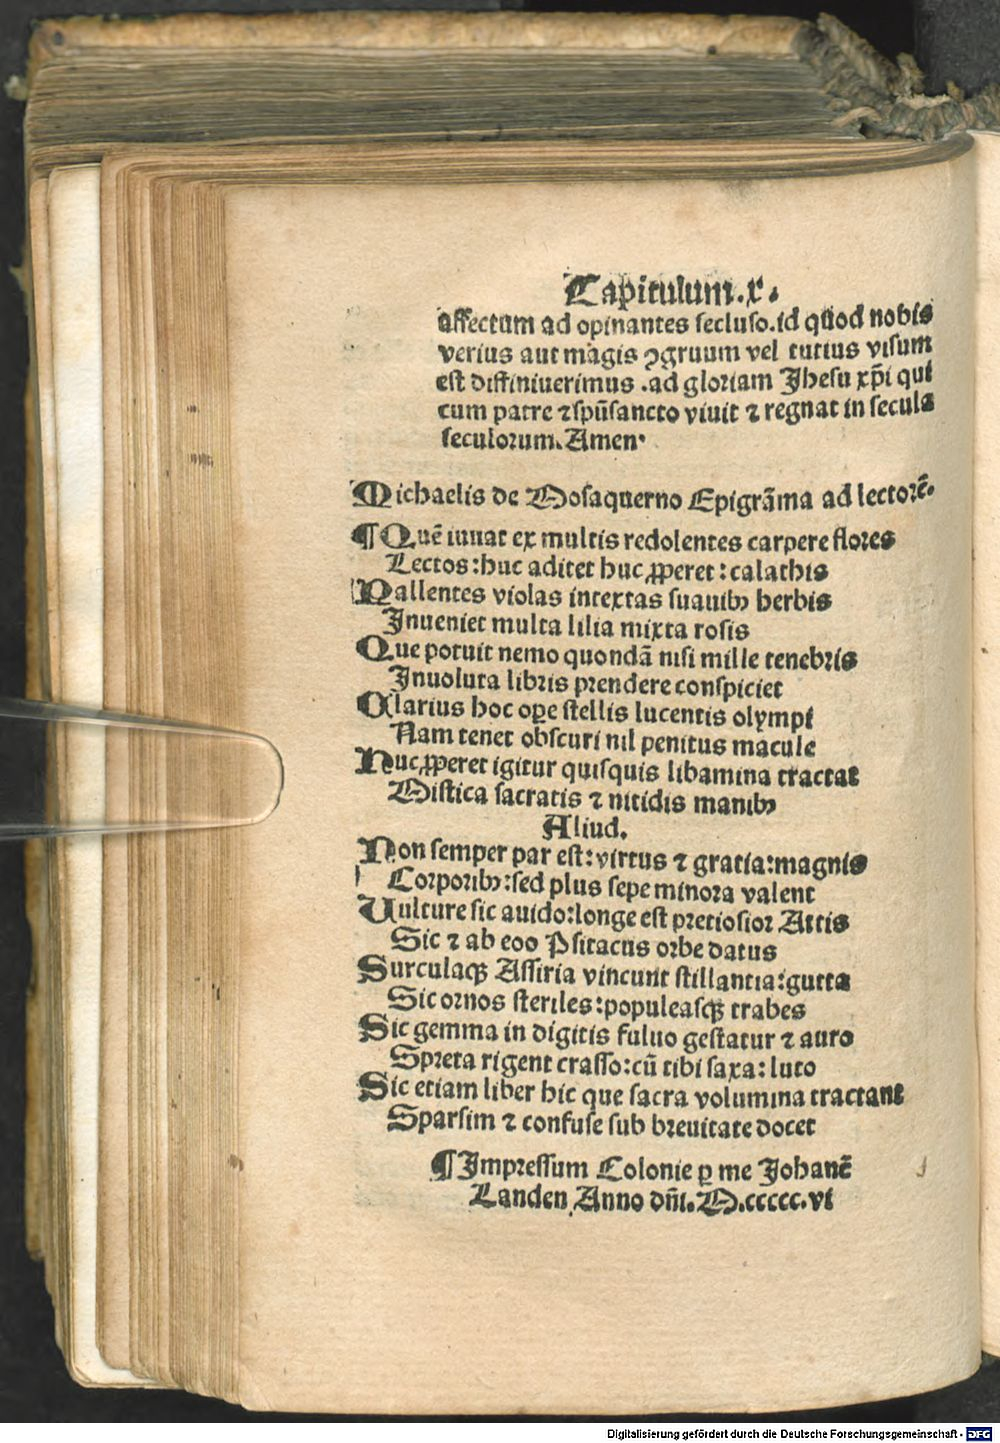 Capitulum.x.
affectum ad opinantes secluso.id qūod nobis
verius aut magis ꝯgruum vel tutius visum
est diffiniuerimus .ad gloriam Jhesu xp̄i qui
cum patre ⁊ spūsancto viuit ⁊ regnat in secula
seculorum.Amen.
Michaelis de Hosaquerno Epigrāma ad lectorē.
¶Quē iuuat ex multis redolentes carpere flores
Lectos:huc aditet huc ꝓperet:calathis
Pallentes violas intextas suauibꝰ herbis
Inueniet multa lilia mixta rosis
Que potuit nemo quondā nisi mille tenebris
Inuoluta libris prendere conspiciet
Clarius hoc opꝰe stellis lucentis olympi
Nam tenet obscuri nil penitus macule
Huc ꝓperet igitur quisquis libamina tractat
Distica sacratis ⁊ nitidis manibꝫ
Aliud.
Non semper par est:virtus ⁊ gratia:magnis
Corporibꝫ:sed plus sepe minora valent
Uulture sic auido:longe est pretiosior Attis
Sic ⁊ ab eoo Psitacus orbe datus
Surculaqꝫ Assiria vincunt stillantia:gutta
Sic ornos steriles:populeasqꝫ trabes
Sic gemma in digitis fuluo gestatur ⁊ auro
Spreta rigent crasso:cū tibi saxa:luto
Sic etiam liber hic que sacra volumina tractant
Sparsim ⁊ confuse sub breuitate docet
¶Impressum Colonie ꝑ me Johanē
Landen Anno dn̄i.M.ccccc.vi
Digitalisierung gefördert durch die Deutsche Forschungsgemeinschaft - DFG